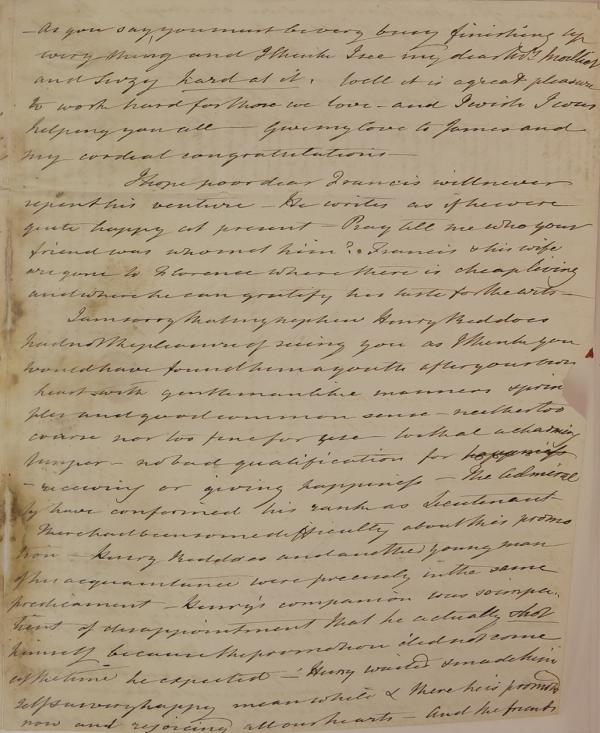 - As you say, you must be very busy finishing up
every thing and I think I see my dear Mrs. Moilliet
and Suzy hard at it. Well it is a great pleasure
to work hard for those we love - and I wish I was
helping you all - Give my love to James and
my cordial congratulations -
I hope poor dear Francis will never
repent his venture - He writes as if he were
quite happy at present - Pray tell me who your
friend was who met him? Francis & his wife
are gone to Florence where there is cheap living
and where he can gratify his taste for the arts -
I am sorry that my nephew Henry Beddoes
had not the pleasure of seeing you as I think you
would have found him a youth after your own
heart with gentlemanlike manners & prin
ples and good common sense - neither too
coarse nor too fine for use with al a charming
temper - no bad qualification for happiness
- receiving or giving happiness - The Admiral
ty have conformed his rank as Lieutenant
There had been some difficulty about his promo
tion - Henry Beddoes and another young man
of his acquaintance were precisely in the same
predicament - Henry's companion was so impa-
tient of disappointment that he actually shot
himself because the promotion did not come
at the time he expected - Henry waited & made him
self as very happy mean while & there he is promoted
now and rejoicing all our hearts - And the friends